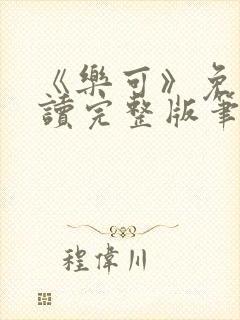 《樂可》免
讀完整版筆
程偉川